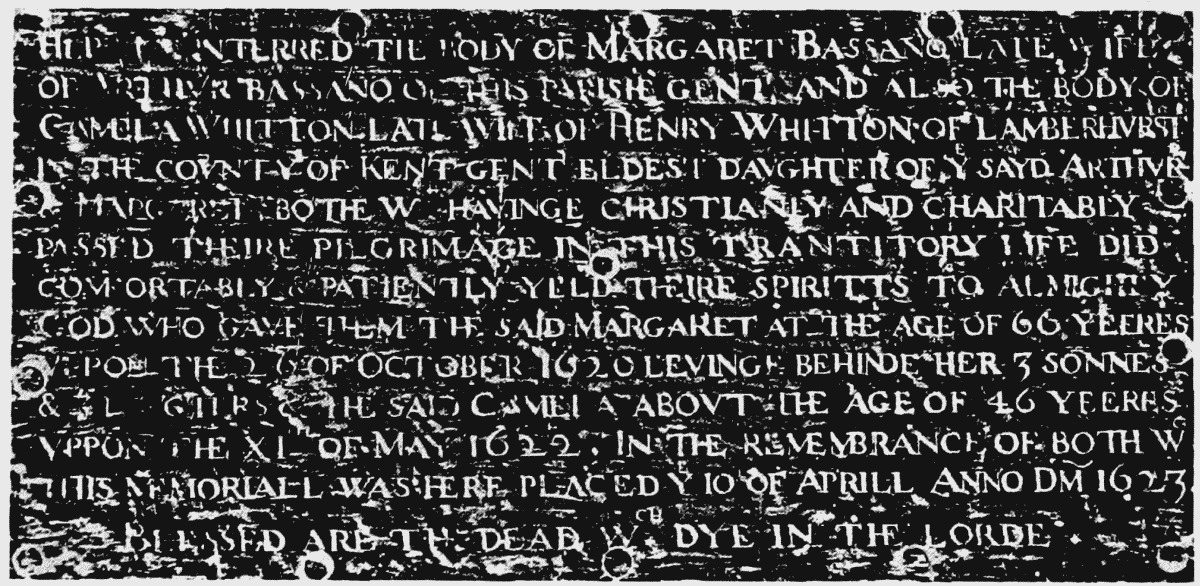 INTERRED THE BODY OF MARGARET BASSANO LATE WIFE
OF ARTHVR BASSANO OF THIS PARISHE GENT AND ALSO THE BODY OF
CAMELA WHITTON LATE WIFE OF HENRY WHITTON OF LAMBERHVRST
IN THE COVNTY OF KENT GENT ELDEST DAVGHTER OF Yᴱ SAYD ARTHVR
& MARGARET BOTHE Wᶜᴴ HAVINGE CHRISTIANLY AND CHARITABLY
PASSED THEIRE PILGRIMAGE IN THIS TRANTITORY LIFE DID
COMFORTABLY & PATIENTLY YELD THEIRE SPIRITTS TO ALMIGHTY
GOD WHO GAVE THEM THE SAID MARGARET AT THE AGE OF 66 YEERES
VPON THE 26 OF OCTOBER 1620 LEVINGE BEHINDE HER 3 SONNES
& THE SAID CAMELA ABOVT THE AGE OF 46 YEERES
VPPON THE XI OF MAY 1622. IN THE REMEMBRANCE OF BOTH Wᶜᴴ
THIS MEMORIALL WAS HERE PLACED Y 10 OF APRILL ANNO DM̃ 1623
BLESSED ARE THE DEAD Wᶜᴴ DYE IN THE LORDE.